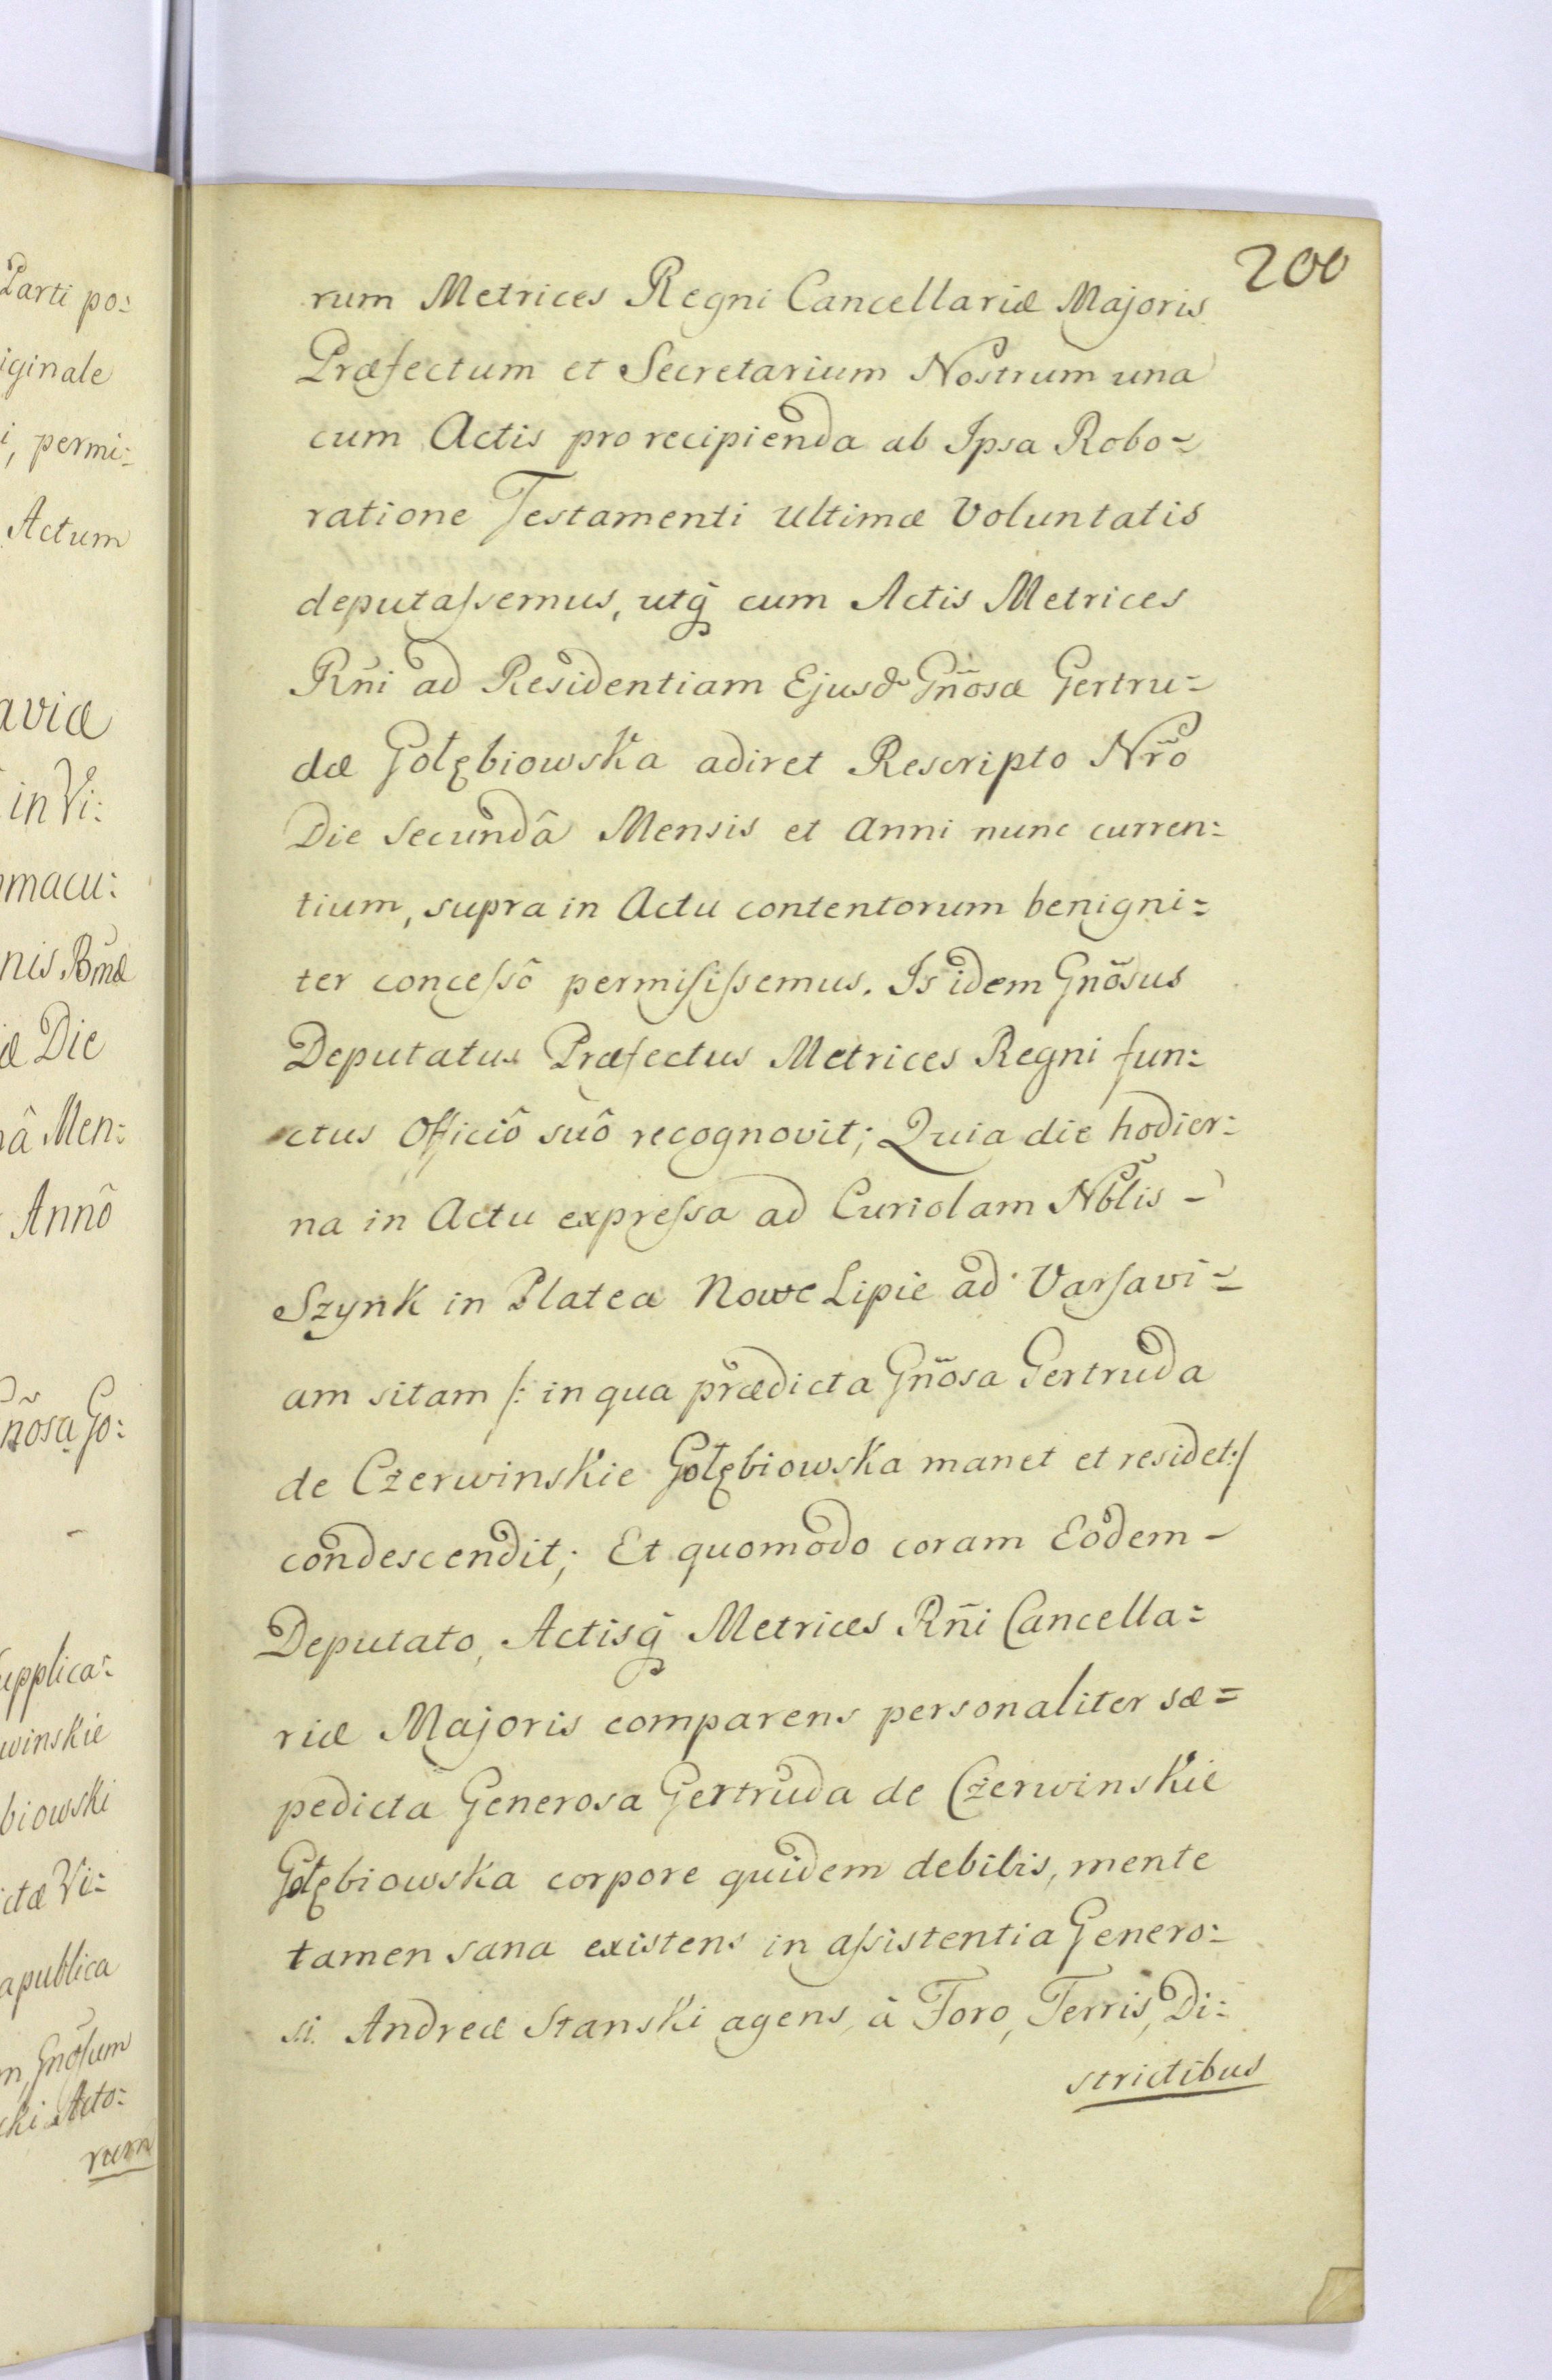 Parti po:
iginale
i, permi:
Actum
aviæ
in Vi:
macu:
nis Bmæ
æ Die
â Men:
Annô
nõsa Go:
-
upplica:
winskie
biowski
ictæ Vi:
apublica
m, Gnõsum
cki Acto:
rum
200
rum Metrices Regni Cancellariæ Majoris
Præfectum et Secretarium Nostrum una
cum Actis pro recipienda ab Ipsa Robo=
ratione Testamenti Ultimæ Voluntatis
deputaſsemus, utq̃ cum Actis Metrices
Rñi ad Residentiam Ejusd Gñosæ Gertru=
dæ Gołębiowska adiret Rescripto Nr̃o
Die Secundâ Mensis et Anni nunc curren:
tium, supra in Actu contentorum benigni=
ter conceſsô permiſiſsemus. Is idem Gnõsus
Deputatus Præfectus Metrices Regni fun:
ctus Officiô suô recognovit; Quia die hodier:
na in Actu expreſsa ad Curiolam Nb̃lis -
Szynk in Platea Nowe Lipie ad Varſavi=
am sitam /: in qua prædicta Gñosa Gertruda
de Czerwinskie Gołębiowska manet et residet:/
condescendit; Et quomodo coram Eodem -
Deputato, Actisq̃ Metrices Rñi Cancella=
riæ Majoris comparens personaliter sæ=
pedicta Generosa Gertruda de Czerwinskie
Gołębiowska corpore quidem debilis, mente
tamen sana existens in aſsistentia Genero:
si Andreæ Stanski agens, à Foro, Terris, Di:
strictibus